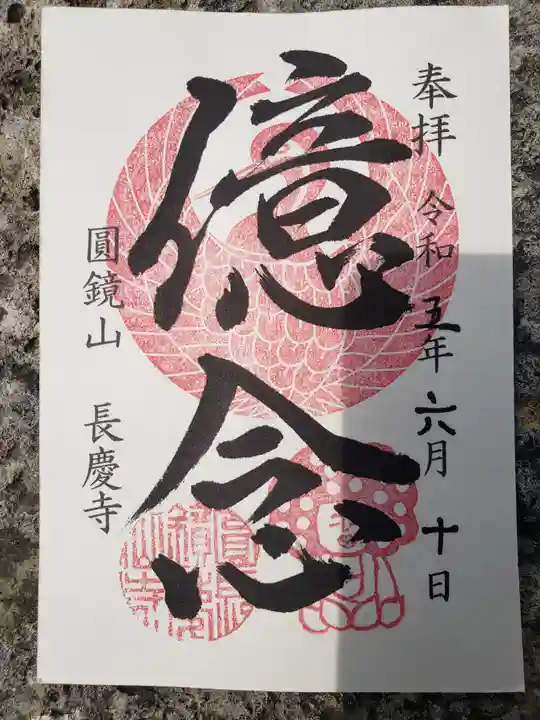 奉拝 令和五年六月十日
億念
圓鏡山 長慶寺